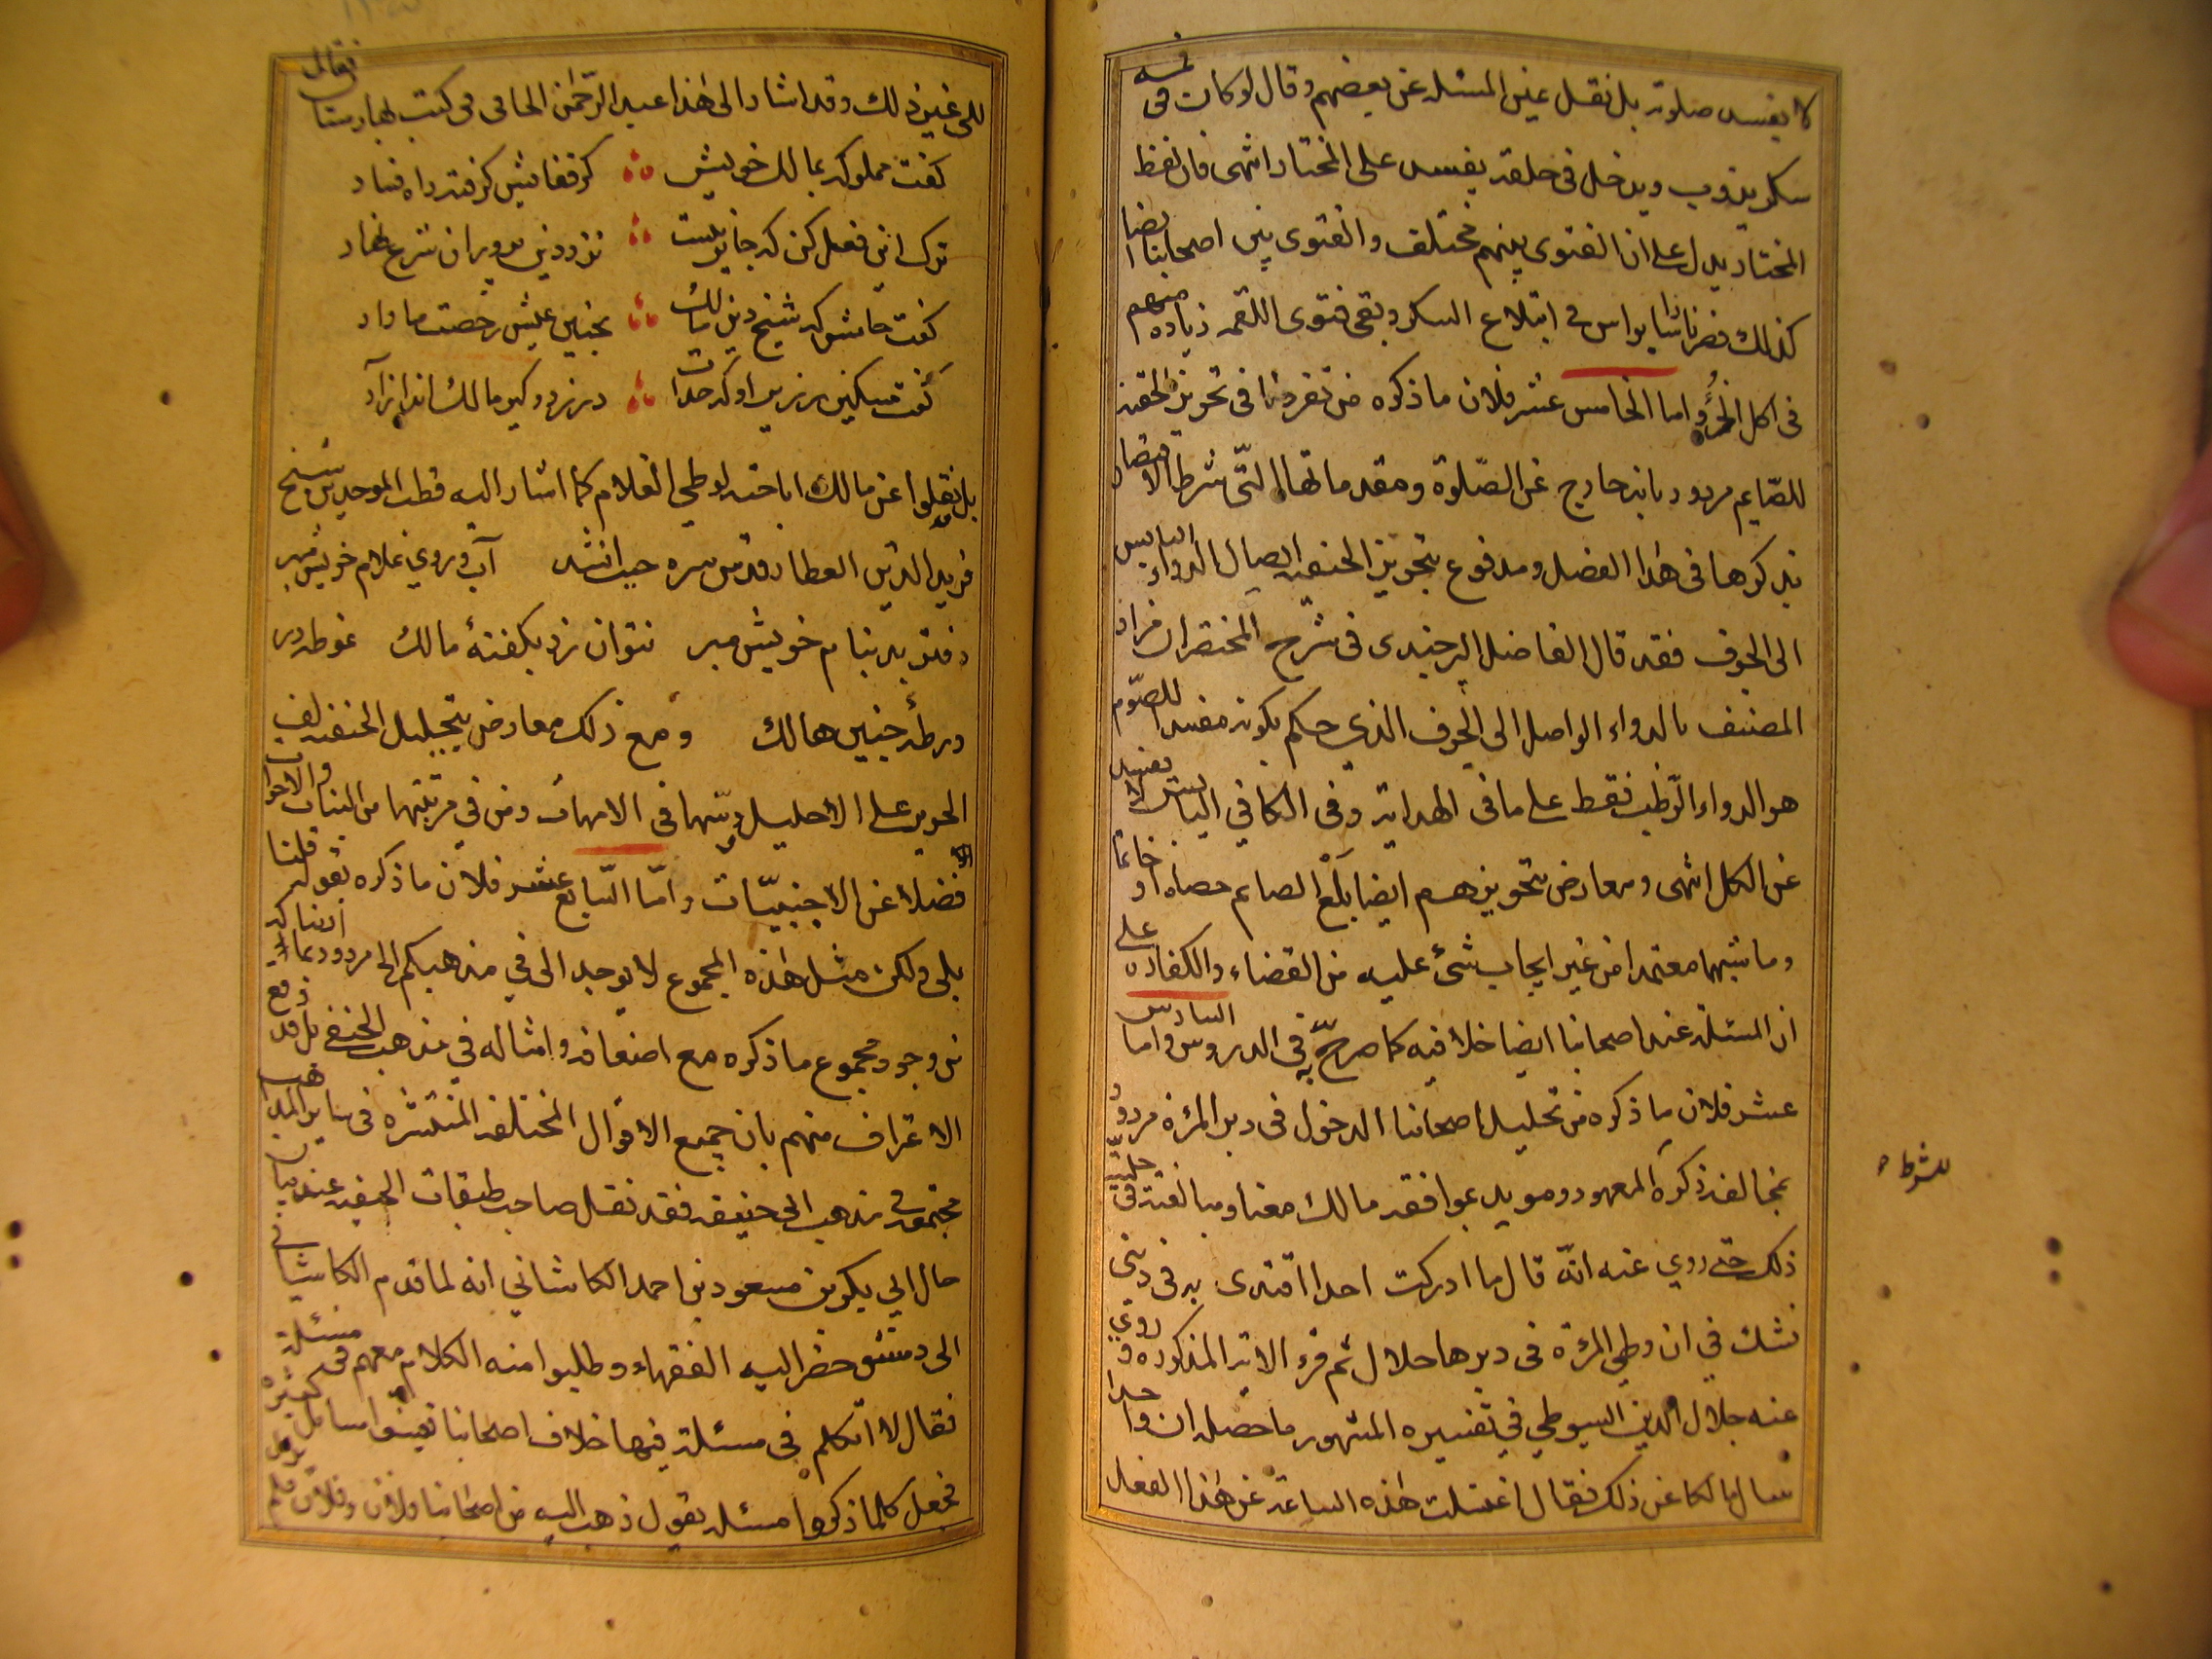 لا يفسد صلوته بل نقل عين المسئلة عن بعضهم وقال لو كان في فمه
سكر يذوب ويدخل في حلقه يفسد على المختار انتهى فان لفظ
المختار يدل على ان الفتوى بينهم مختلف والفتوى بين اصحابنا ايضا
كذلك فصرنا رأسا براس في ابتلاع السكر وبقى فتوى اللقمة زيادة منهم
في اكل الخرؤ واما الخامس عشر فلان ما ذكره من تفردنا في تجويز الحقنة
للصايم مردود بانه خارج عن الصلوة ومقدماتها التي شرط الاقتصار
بذكرها في هذا الفصل ومدفوع بتجويز الحنفية ايصال الدواء اليابس
الى الجوف فقد قال الفاضل البرجندي في شرح المختصر ان مراد
المصنف بالدواء الواصل الى الجوف الذي حكم بكونه مفسدا للصوم
هو الدواء الرطب فقط على ما في الهداية وفي الكافي اليابس لا يفسد
عن الكل انتهى ومعارض بتجويزهم ايضا بلع الصائم حصاه او خاتما
وما شبهها معتمدا من غير ايجاب شئ عليه من القضاء والكفارة على
ان المسئلة عند اصحابنا ايضا خلافيه كما صرح به في الدروس واما السادس
عشر فلان ما ذكره من تحليل اصحابنا الدخول في دبر المرءة مردود
بمخالفة ذكره المعهود ومويد بموافقة مالك معنا ومبالغته في حلية
ذلك حتى روي عنه انه قال ما ادركت احدا اقتدى به في ديني
نشك في ان وطي المرءة في دبرها حلال ثم قرء الاية المذكورة وروي
عنه جلال الدين السيوطي في تفسيره المشهور ما حصله ان واحدا
سال مالكا عن ذلك فقال اغتسلت هذه الساعة عن هذا الفعل
للشرط
للى غير ذلك وقد اشار الى هذا عبد الرحمن الجامي في كتب بهارستا فقال
گفت مملوكه بمالك خويش گر قفا پيش گرفته راه فساد
ترك اين فعل كن كه جايز نيست نزد دين پروران شرع نهاد
گفت خامش كه شيخ دين مالك بچنين عيش رخصت ما داد
گفت مسكين بزير او كه خدات در زد وگير مالك اندازاد
بل نقلوا عن مالك اباحته لوطي الغلام كما اشار اليه قطب الموحدين شيخ
فريد الدين العطار قدس سره حيث انشد آب وروي غلام خويش مبر
دفتر بد بنام خويش مبر نتوان زد بگفتهٔ مالك غوطه در
ورطهٔ چنين هالك ومع ذلك معارض بتحليل الحنفية لف
الحرير على الاحليل في الامهات ومن في مرتبتها من البنات والاخوات
فضلا عن الاجنبيات واما السابع عشر فلان ما ذكره بقوله قلنا
بلى ولكن مثل هذه المجموع لا يوجد الى في مذهبكم الخ مردود بما
من وجود مجموع ما ذكره مع اضعافه وامثاله في مذهب الحنفي بل قد وقع
الاعتراف منهم بان جميع الاقوال المختلفة المنتشرة في ساير المذاهب
مجتمعة في مذهب ابي حنيفه فقد نقل صاحب طبقات الحنفية عند بيان
حال ابي بكر بن مسعود بن احمد الكاشاني انه لما قدم الكاشاني
الى دمشق حضر اليه الفقهاء وطلبوا منه الكلام معهم في مسئلة
فقال لا اتكلم في مسئلة فيها خلاف اصحابنا فعينوا مسائل كثيرة
فجعل كلما ذكروا مسئلة يقول ذهب اليه من اصحابنا فلان وفلان فلم